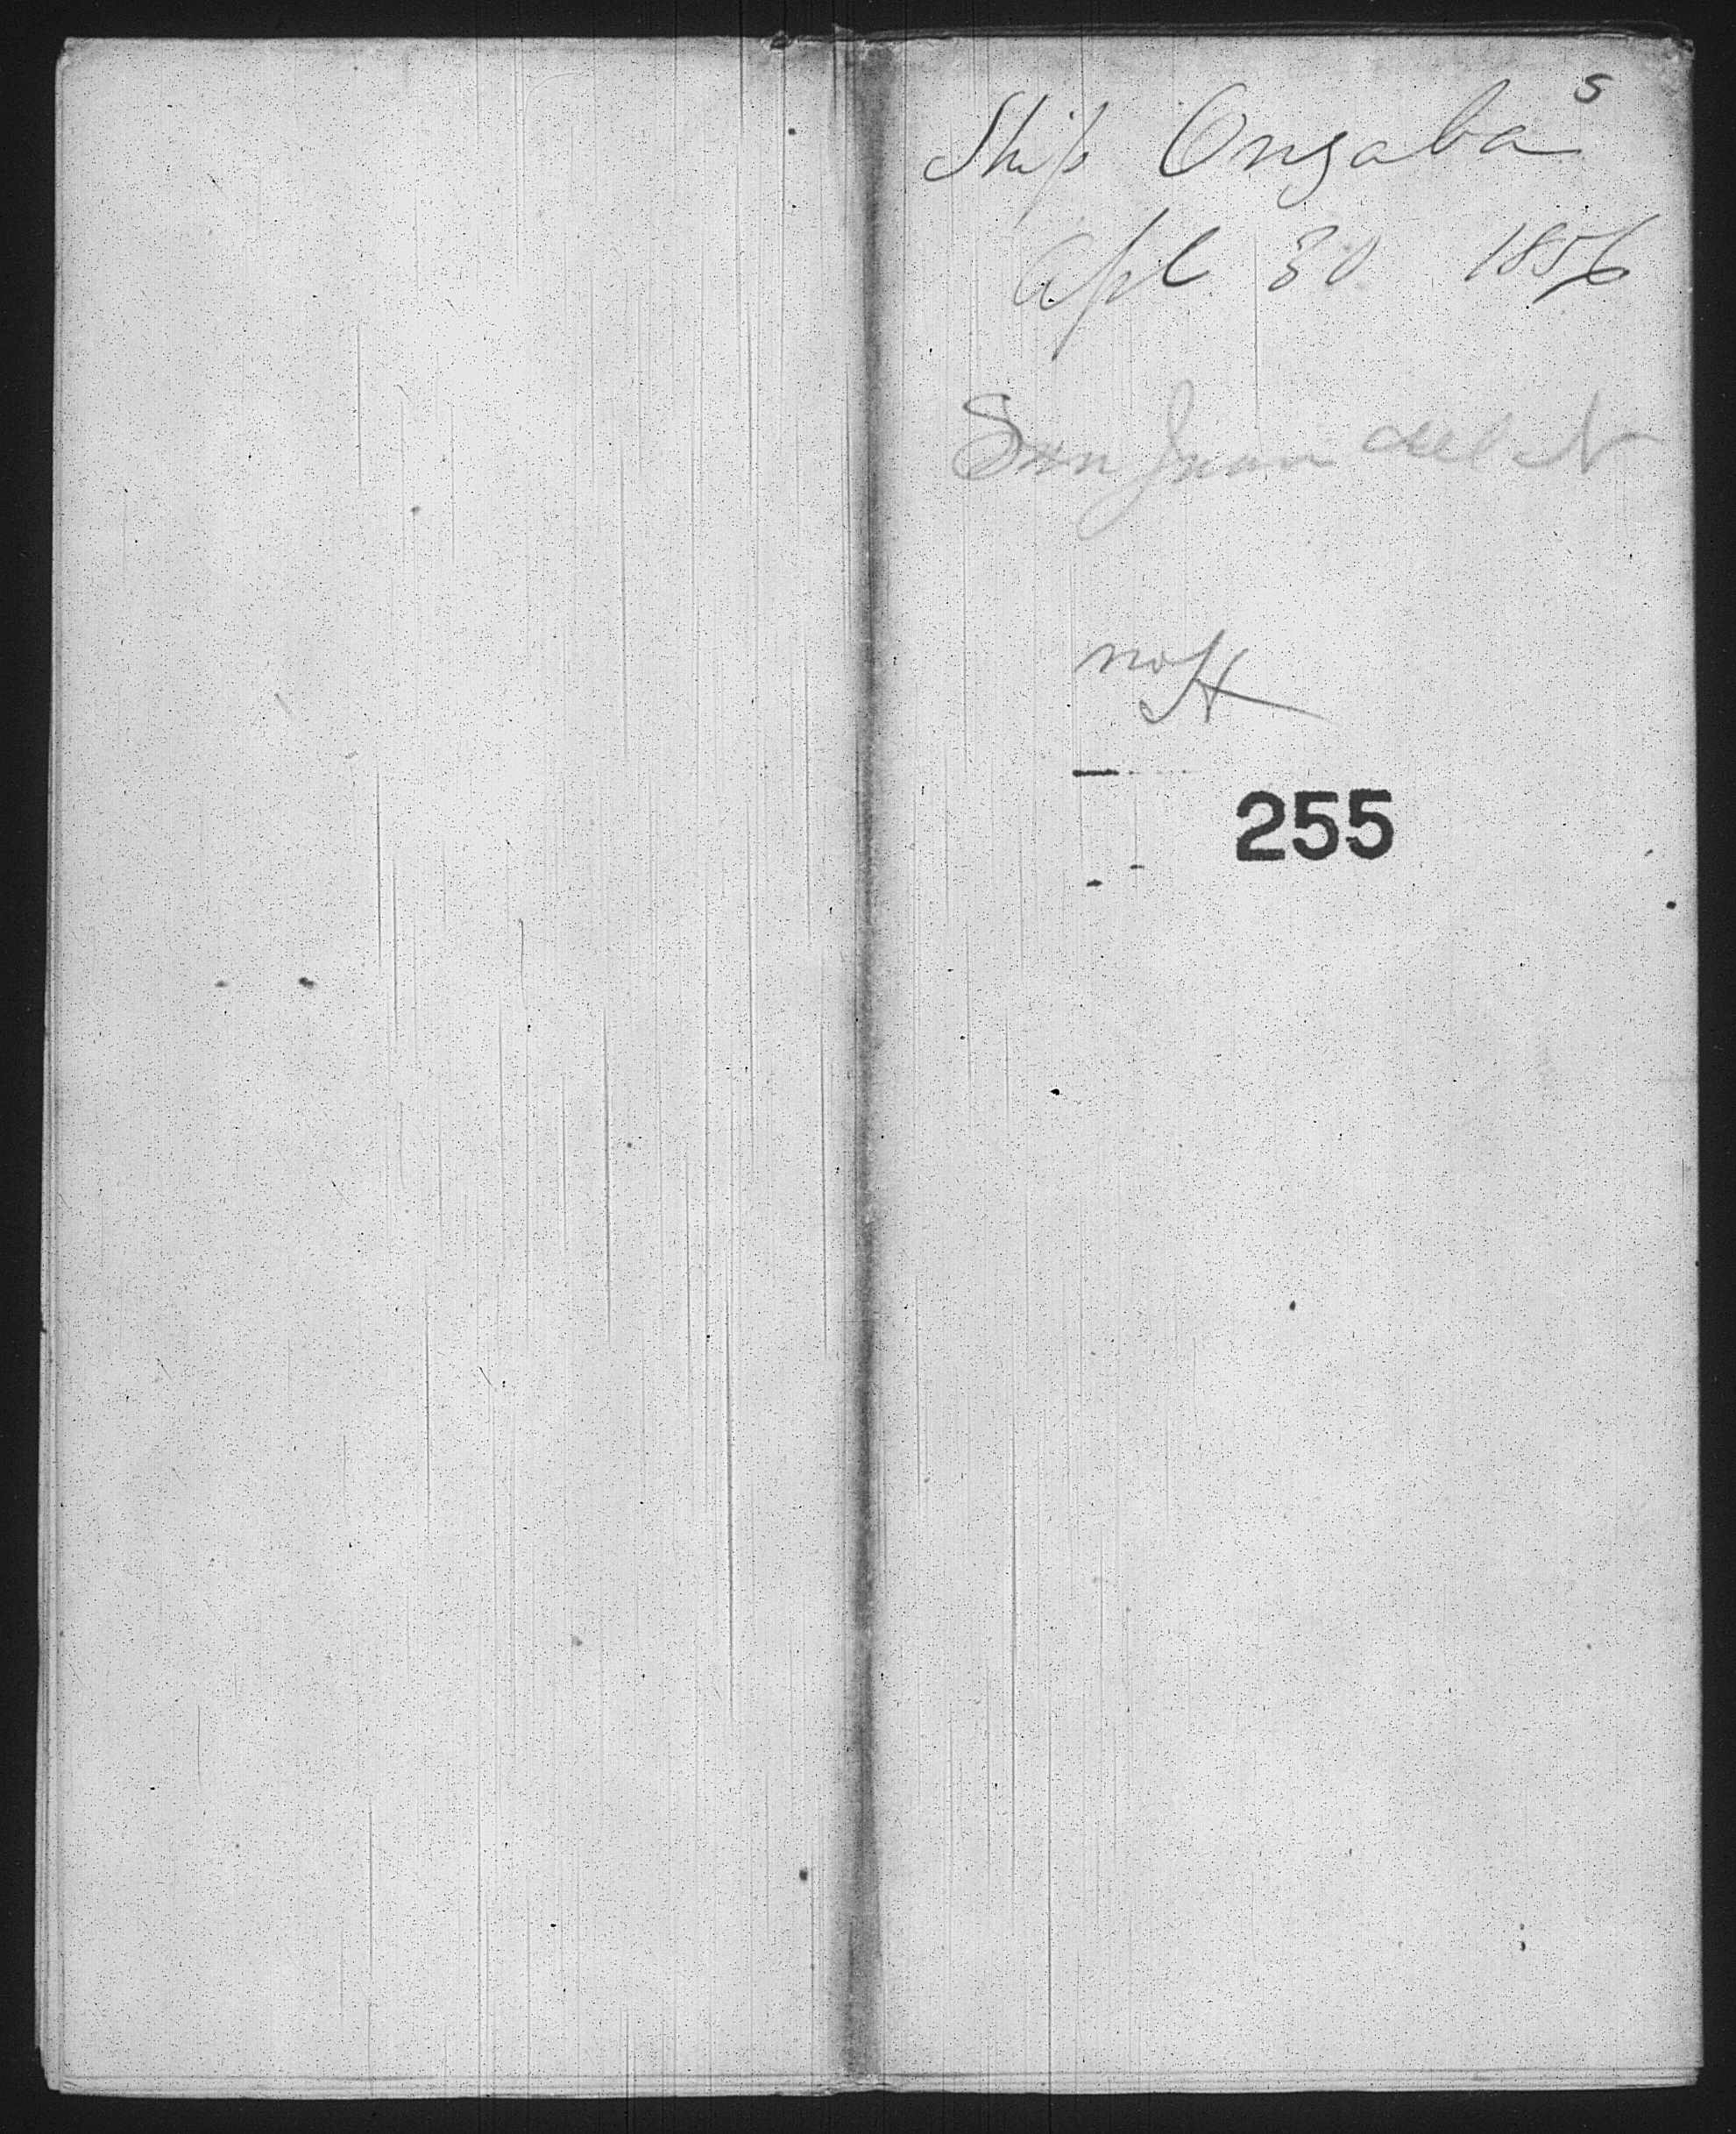 S
Ship Onzaba
Apl 30 1856
San Juan del N
no H
255